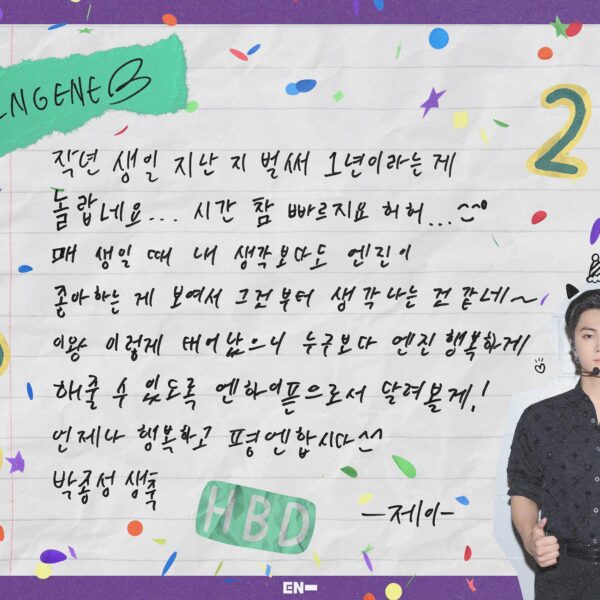 ENGENE
2
작년 생일 지난 지 벌써 1년이라는게
놀랍네요... 시간 참 빠르지요 허허...^^
매 생일 때 내 생각보다도 엔진이
좋아하는 게 보여서 그것부터 생각나는 것 같네~
이왕 이렇게 태어났으니 누구보다 엔진 행복하게
해줄 수 있도록 엔하이픈으로서 달려볼게!
언제나 행복하고 평엔합시다^^
박종성 생축
HBD
-제이-
EN-